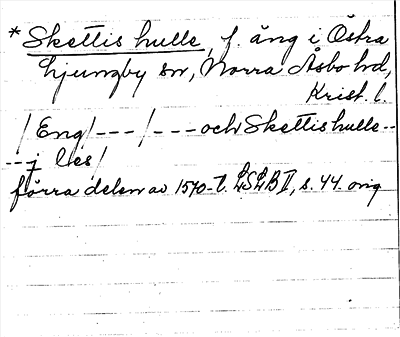 *Skettis hulle, f. äng i Östra
Ljungby sn, Norra Åsbo hd,
Krist. l.
/Eng/---/---och Skettis hulle--
--j les/
förra delen av 1570-t. LSLB II, s. 44. orig